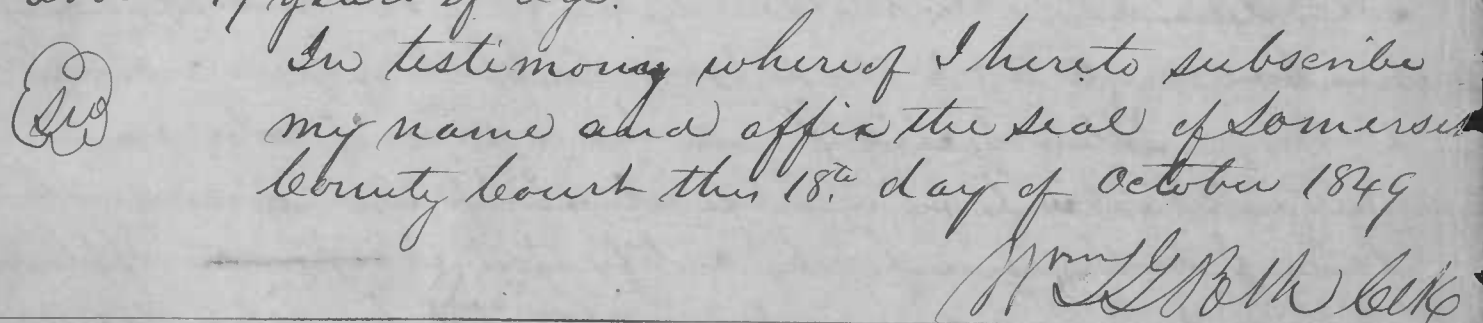 years of age.
In testimony whereof I hereto subscribe
my name and affix the seal of Somerset
County Court this 18th. day of October 1849
Wm Clk